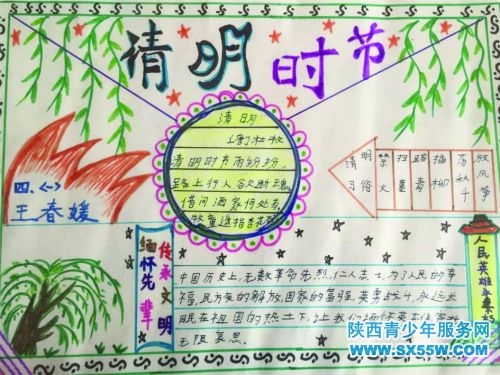 清明时节
清明
唐 杜牧
清明时节雨纷纷
路上行人欲断魂
借问酒家何处有
牧童遥指杏花
四、(一)
王春媛
清明
习俗
禁火
扫墓
踏青
插柳
荡秋千
放风筝
缅怀先辈
传承文明
中国历史上,无数革命先烈、仁人志士,为了人民的幸
福,民族的解放,国家的富强,英勇战斗,永远长
眠在祖国的热土下,让我们缅怀英
无限哀思。
人民英雄永垂
陕西青少年服务网
www.sx55w.com